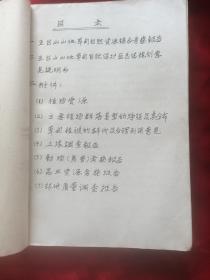 目录
一 五台山山地草甸自然资源综合考察报告
二 五台山山地草甸自然保护区总体规划意见说明书
三 附件：
(1) 植物资源
(2) 主要植物群落类型的特征及其分布
(3) 草甸植被的群代及合理利用意见
(4) 土壤调查报告
(5) 动物（鸟兽）考察报告
(6) 昆虫资源考察报告
(7) 环境质量调查报告